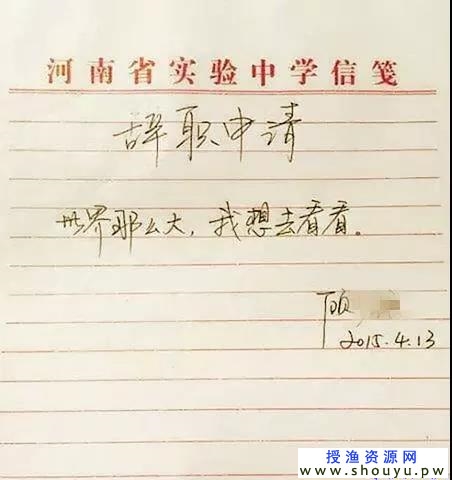 河南省实验中学信笺
辞职申请
世界那么大，我想去看看。
顾
2015.4.13
授渔资源网
www.shouyu.pw